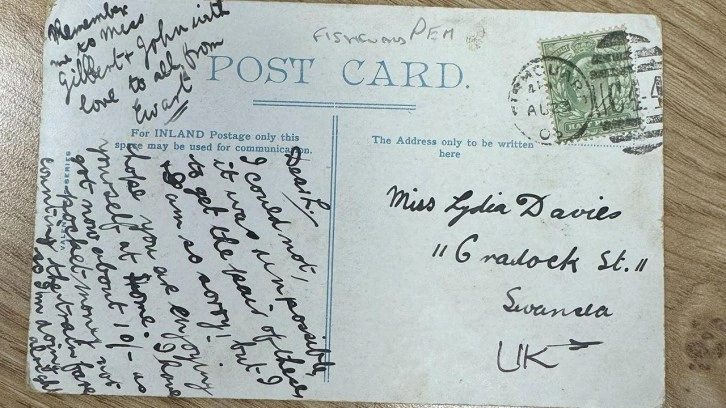 Remember
me to Miss
Gilbert & John with
love to all from
Ewart
FISHGUARD PEM
POST CARD.
For INLAND Postage only this
space may be used for communication.
The Address only to be written
here
VALENTINES SERIES
Dear L.
I could not,
it was unpossible,
to get the pair of these
I am so sorry! but I
hope you are enjoying
yourself at Home. I have
got now about 10/- as
pocket money nor
counting the train fare
so I'm doing
alright
Miss Lydia Davies
"Cradock St."
Swansea
UK
AU